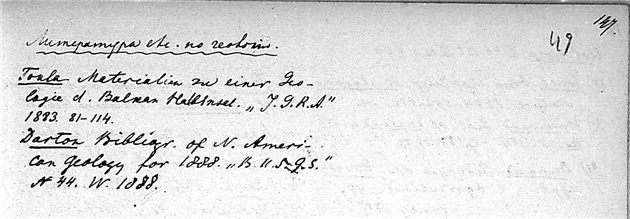 147.
49
Литература etc. по геологии.
Toula Materialien zu einer Geo-
logie d. Balkan Halbinsel. „J. G. R. A."
1883. 81–114.
Darton Bibliogr. of N. Ameri-
can geology for 1888. „B. U. S. G. S."
N 44. W. 1888.